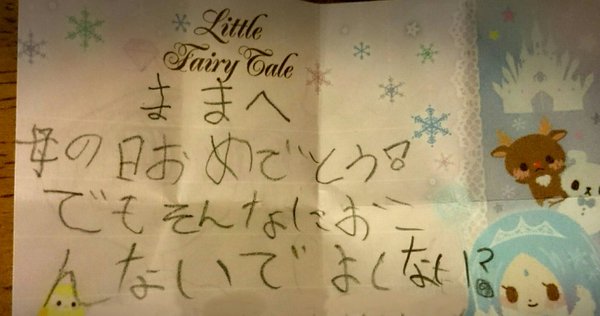 Little
Fairy Tale
ままへ
母の日おめでとう!
でもそんなにおこ
んないでよくなぃ!?